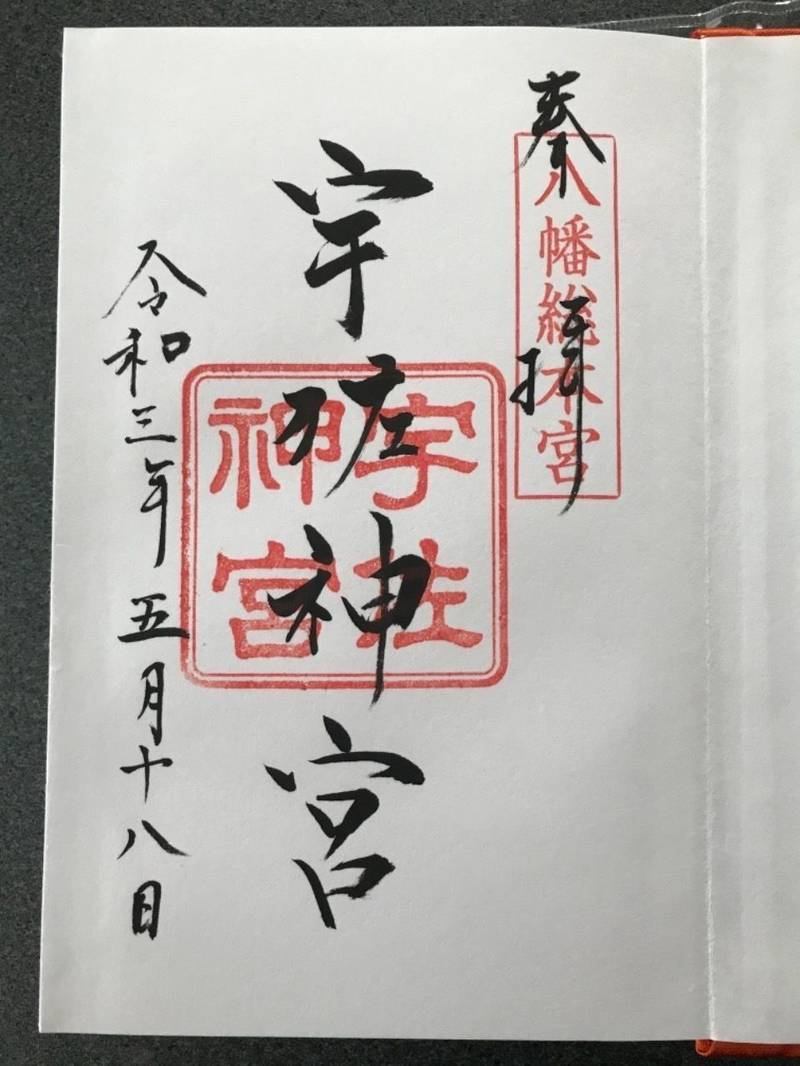 奉拝
八幡総本宮
宇佐神宮
宇佐
神宮
令和三年五月十八日